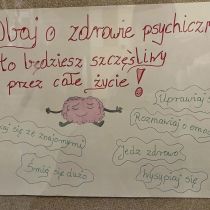 Dbaj o zdrowie psychiczne
to będziesz szczęśliwy
przez całe życie!
Uprawiaj
Rozmawiaj o emo
się ze znajomymi
Jedz zdrowo
Śmiej się dużo
Wysypiaj się